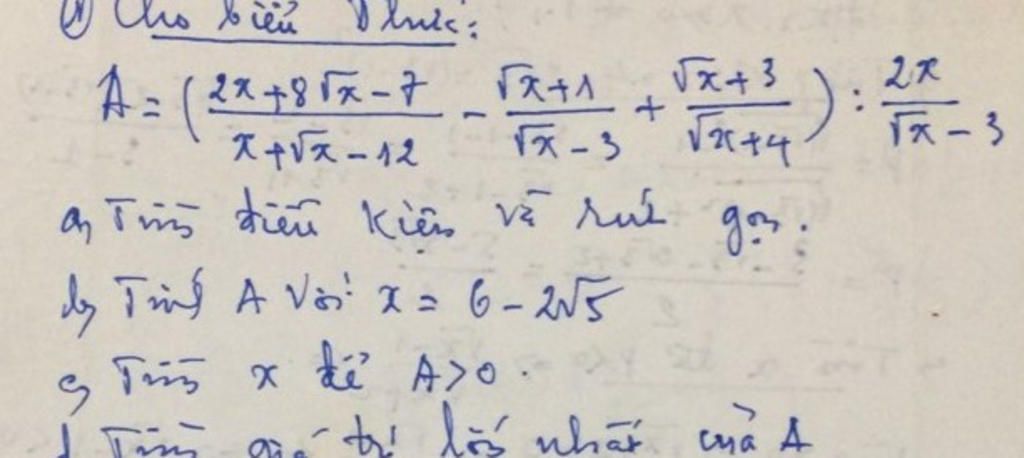 ① Cho biểu thức:
A = ( (2x + 8√x − 7)/(x + √x − 12) − (√x + 1)/(√x − 3) + (√x + 3)/(√x + 4) ) : 2x/(√x − 3)
a, Tìm điều kiện và rút gọn.
b, Tính A với x = 6 − 2√5
c, Tìm x để A > 0.
d, Tìm giá trị lớn nhất của A